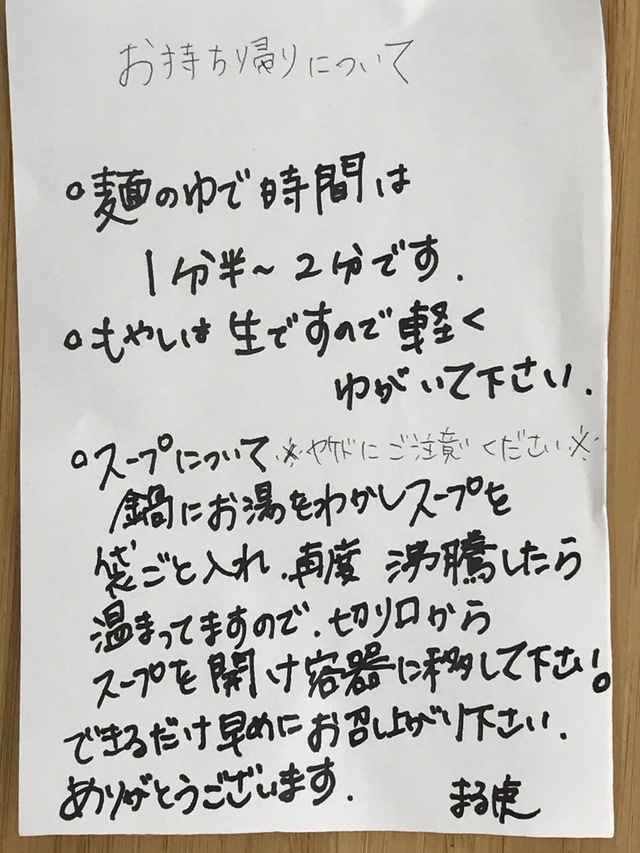 お持ち帰りについて
○麺のゆで時間は
1分半～2分です.
○もやしは生ですので軽く
ゆがいて下さい.
○スープについて※ヤケドにご注意ください※
鍋にお湯をわかしスープを
袋ごと入れ、再度 沸騰したら
温まってますので、切り口から
スープを開け容器に移して下さい。
できるだけ早めにお召し上がり下さい.
ありがとうございます.
まる虎